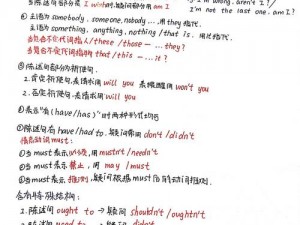 陈述句部分是 I wish时, 疑问部分用 am I
I'm wrong. aren't I?
I'm not the last one. am I?
② 主语为 somebody, someone, nobody... 用 they 指代.
主语为 something, anything, nothing, that is. 用 it 指代.
当复合不定代词指人/these/those — ...they?
当复合不定代词指物/this/that — ...it?
③ 陈述句为祈使句.
1. 肯定祈使句, 表请求用 will you 表 用 won't you
2. 否定祈使句, 表请求用 will you
④ 表"有(have/has)"时两种形式均可
⑤ 陈述句有 have/had to. 疑问部分用 don't / didn't
情态动词 must:
①当 must 表示必须, 用 mustn't / needn't
②当 must 表示禁止, 用 may / must
③当 must 表示推测, 疑问根据 must 后的动词推测.
含有特殊结构:
1. 陈述句 ought to → 疑问 shouldn't / oughtn't
2. 陈述句 to → 疑问 didn't